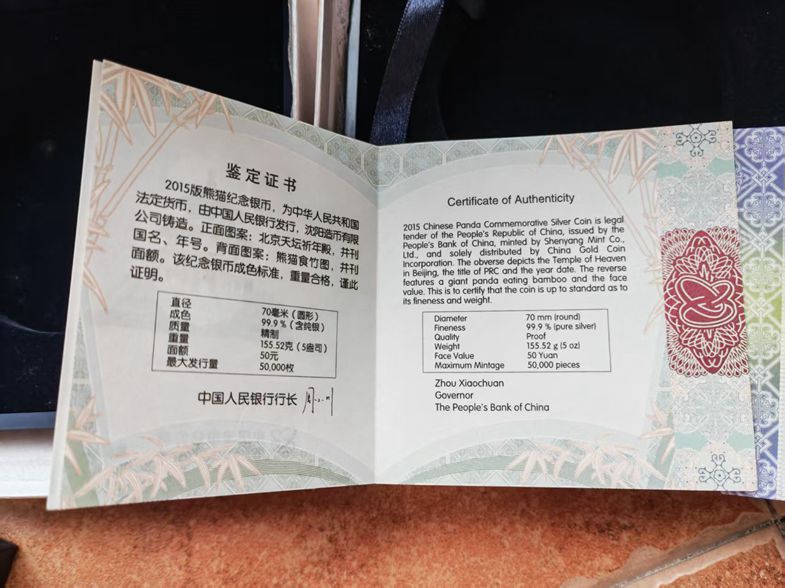 鉴定证书
2015版熊猫纪念银币，为中华人民共和国
法定货币，由中国人民银行发行，沈阳造币有限
公司铸造。正面图案：北京天坛祈年殿，并刊
国名、年号。背面图案：熊猫食竹图，并刊
面额。该纪念银币成色标准，重量合格，谨此
证明。
直径 70毫米（圆形）
成色 99.9%（含纯银）
质量 精制
重量 155.52克（5盎司）
面额 50元
最大发行量 50,000枚
中国人民银行行长
Certificate of Authenticity
2015 Chinese Panda Commemorative Silver Coin is legal
tender of the People's Republic of China, issued by the
People's Bank of China, minted by Shenyang Mint Co.,
Ltd., and solely distributed by China Gold Coin
Incorporation. The obverse depicts the Temple of Heaven
in Beijing, the title of PRC and the year date. The reverse
features a giant panda eating bamboo and the face
value. This is to certify that the coin is up to standard as to
its fineness and weight.
Diameter 70 mm (round)
Fineness 99.9 % (pure silver)
Quality Proof
Weight 155.52 g (5 oz)
Face Value 50 Yuan
Maximum Mintage 50,000 pieces
Zhou Xiaochuan
Governor
The People's Bank of China